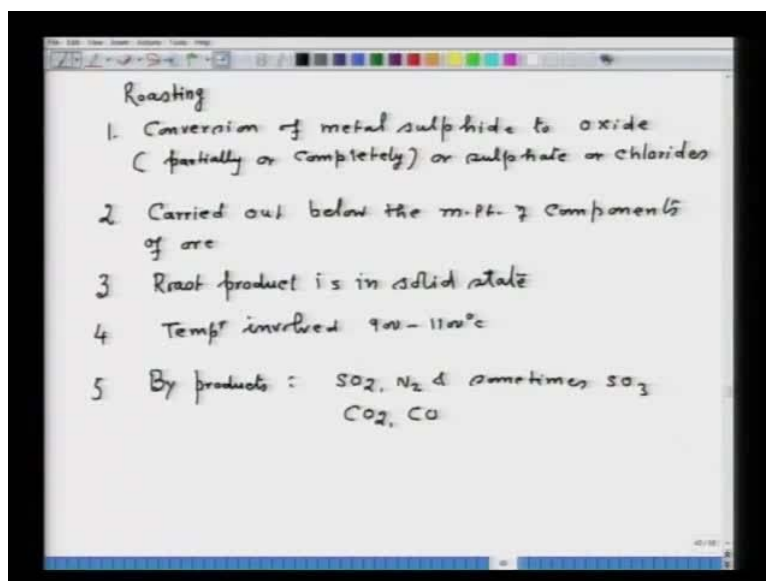 Roasting
1. Conversion of metal sulphide to oxide
(partially or completely) or sulphate or chlorides
2 Carried out below the m.pt. of components
of ore
3 Roast product is in solid state
4 Tempr involved 900 - 1100°c
5 By products : SO2, N2 & sometimes SO3
CO2, CO